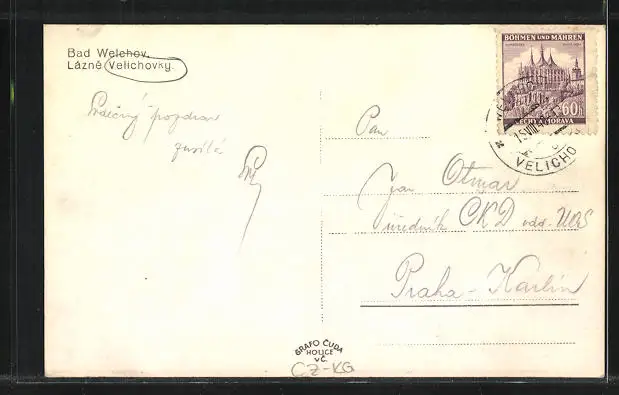 Bad Welchov.
Lázně Velichovky.
Srdečný pozdrav
zasílá
Pan
Jan Otmar
úředník ČKD odd.
Praha-Karlín
BÖHMEN UND MÄHREN
60
ČECHY A MORAVA
VELICHO
GRAFO ČUDA
HOLICE
V Č.
CZ-KG